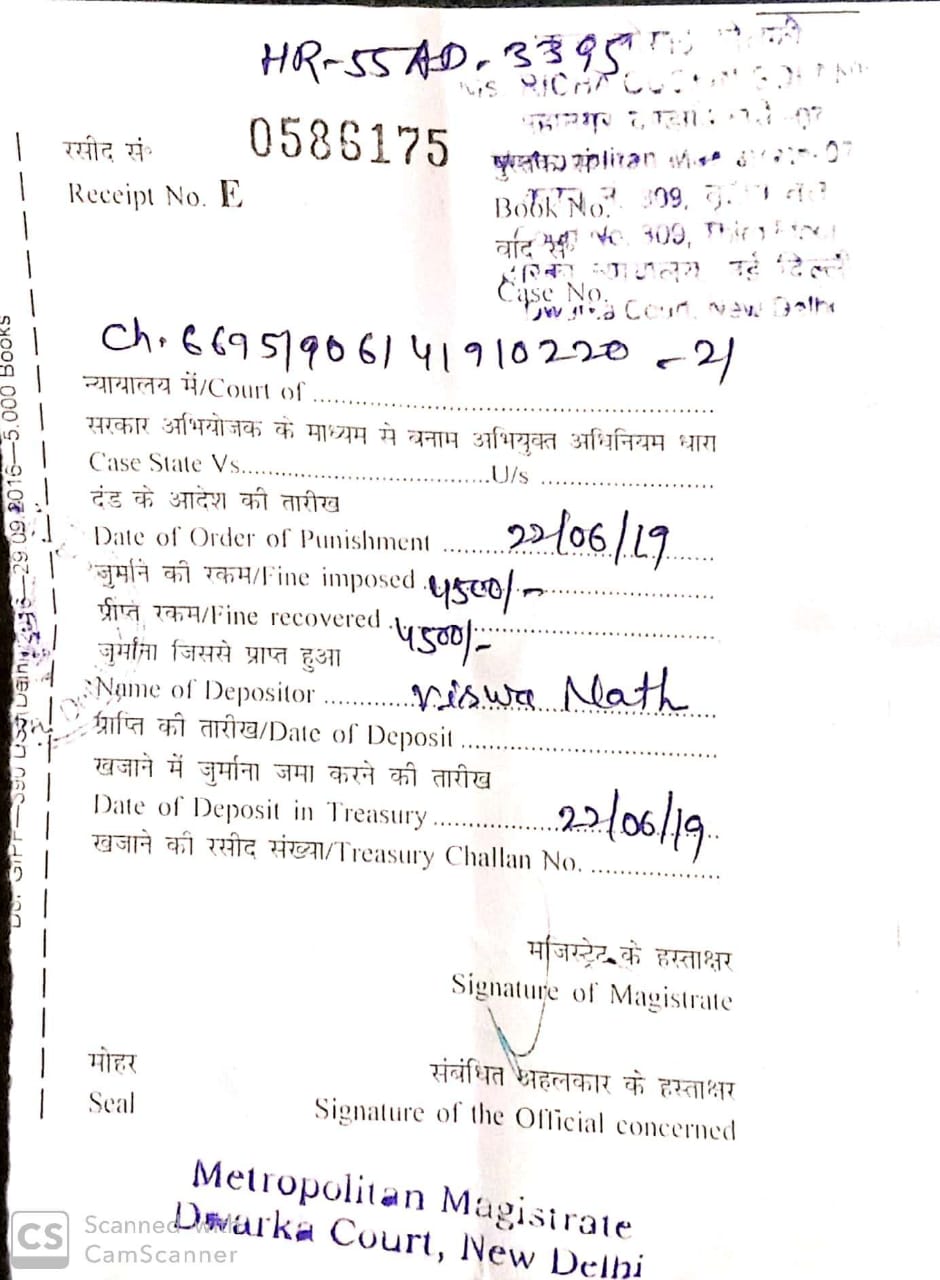 HR-55AD-3395
रसीद सं॰ 0586175
Receipt No. E
Book No. 309,
वाद सं॰ No. 309,
Case No.
Dwarka Court, New Delhi
Ch. 6695/906/41910220-21
न्यायालय में/Court of
सरकार अभियोजक के माध्यम से बनाम अभियुक्त अधिनियम धारा
Case State Vs. U/s
दंड के आदेश की तारीख
Date of Order of Punishment 22/06/19
जुर्माने की रकम/Fine imposed 4500/-
प्राप्त रकम/Fine recovered 4500/-
जुर्माना जिससे प्राप्त हुआ
Name of Depositor Viswa Nath
प्राप्ति की तारीख/Date of Deposit
खजाने में जुर्माना जमा करने की तारीख
Date of Deposit in Treasury 22/06/19
खजाने की रसीद संख्या/Treasury Challan No.
मजिस्ट्रेट के हस्ताक्षर
Signature of Magistrate
मोहर संबंधित अहलकार के हस्ताक्षर
Seal Signature of the Official concerned
Metropolitan Magistrate
Dwarka Court, New Delhi
29.09.2016—5,000 Books
CS Scanned with
CamScanner